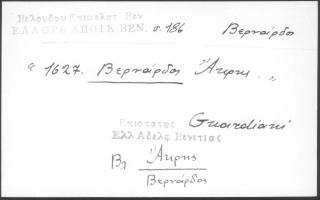 Βελούδου Επιμελητ Βεν
ΕΛΛΟΡΘ ΑΠΟΙΚ ΒΕΝ. σ. 186 Βερνάρδος
“ 1627. Βερνάρδος Άκρης. „
Επιστάτης Guardiani
Ελλ Αδελφ Βενετίας
Βλ. Άκρης
Βερνάρδος